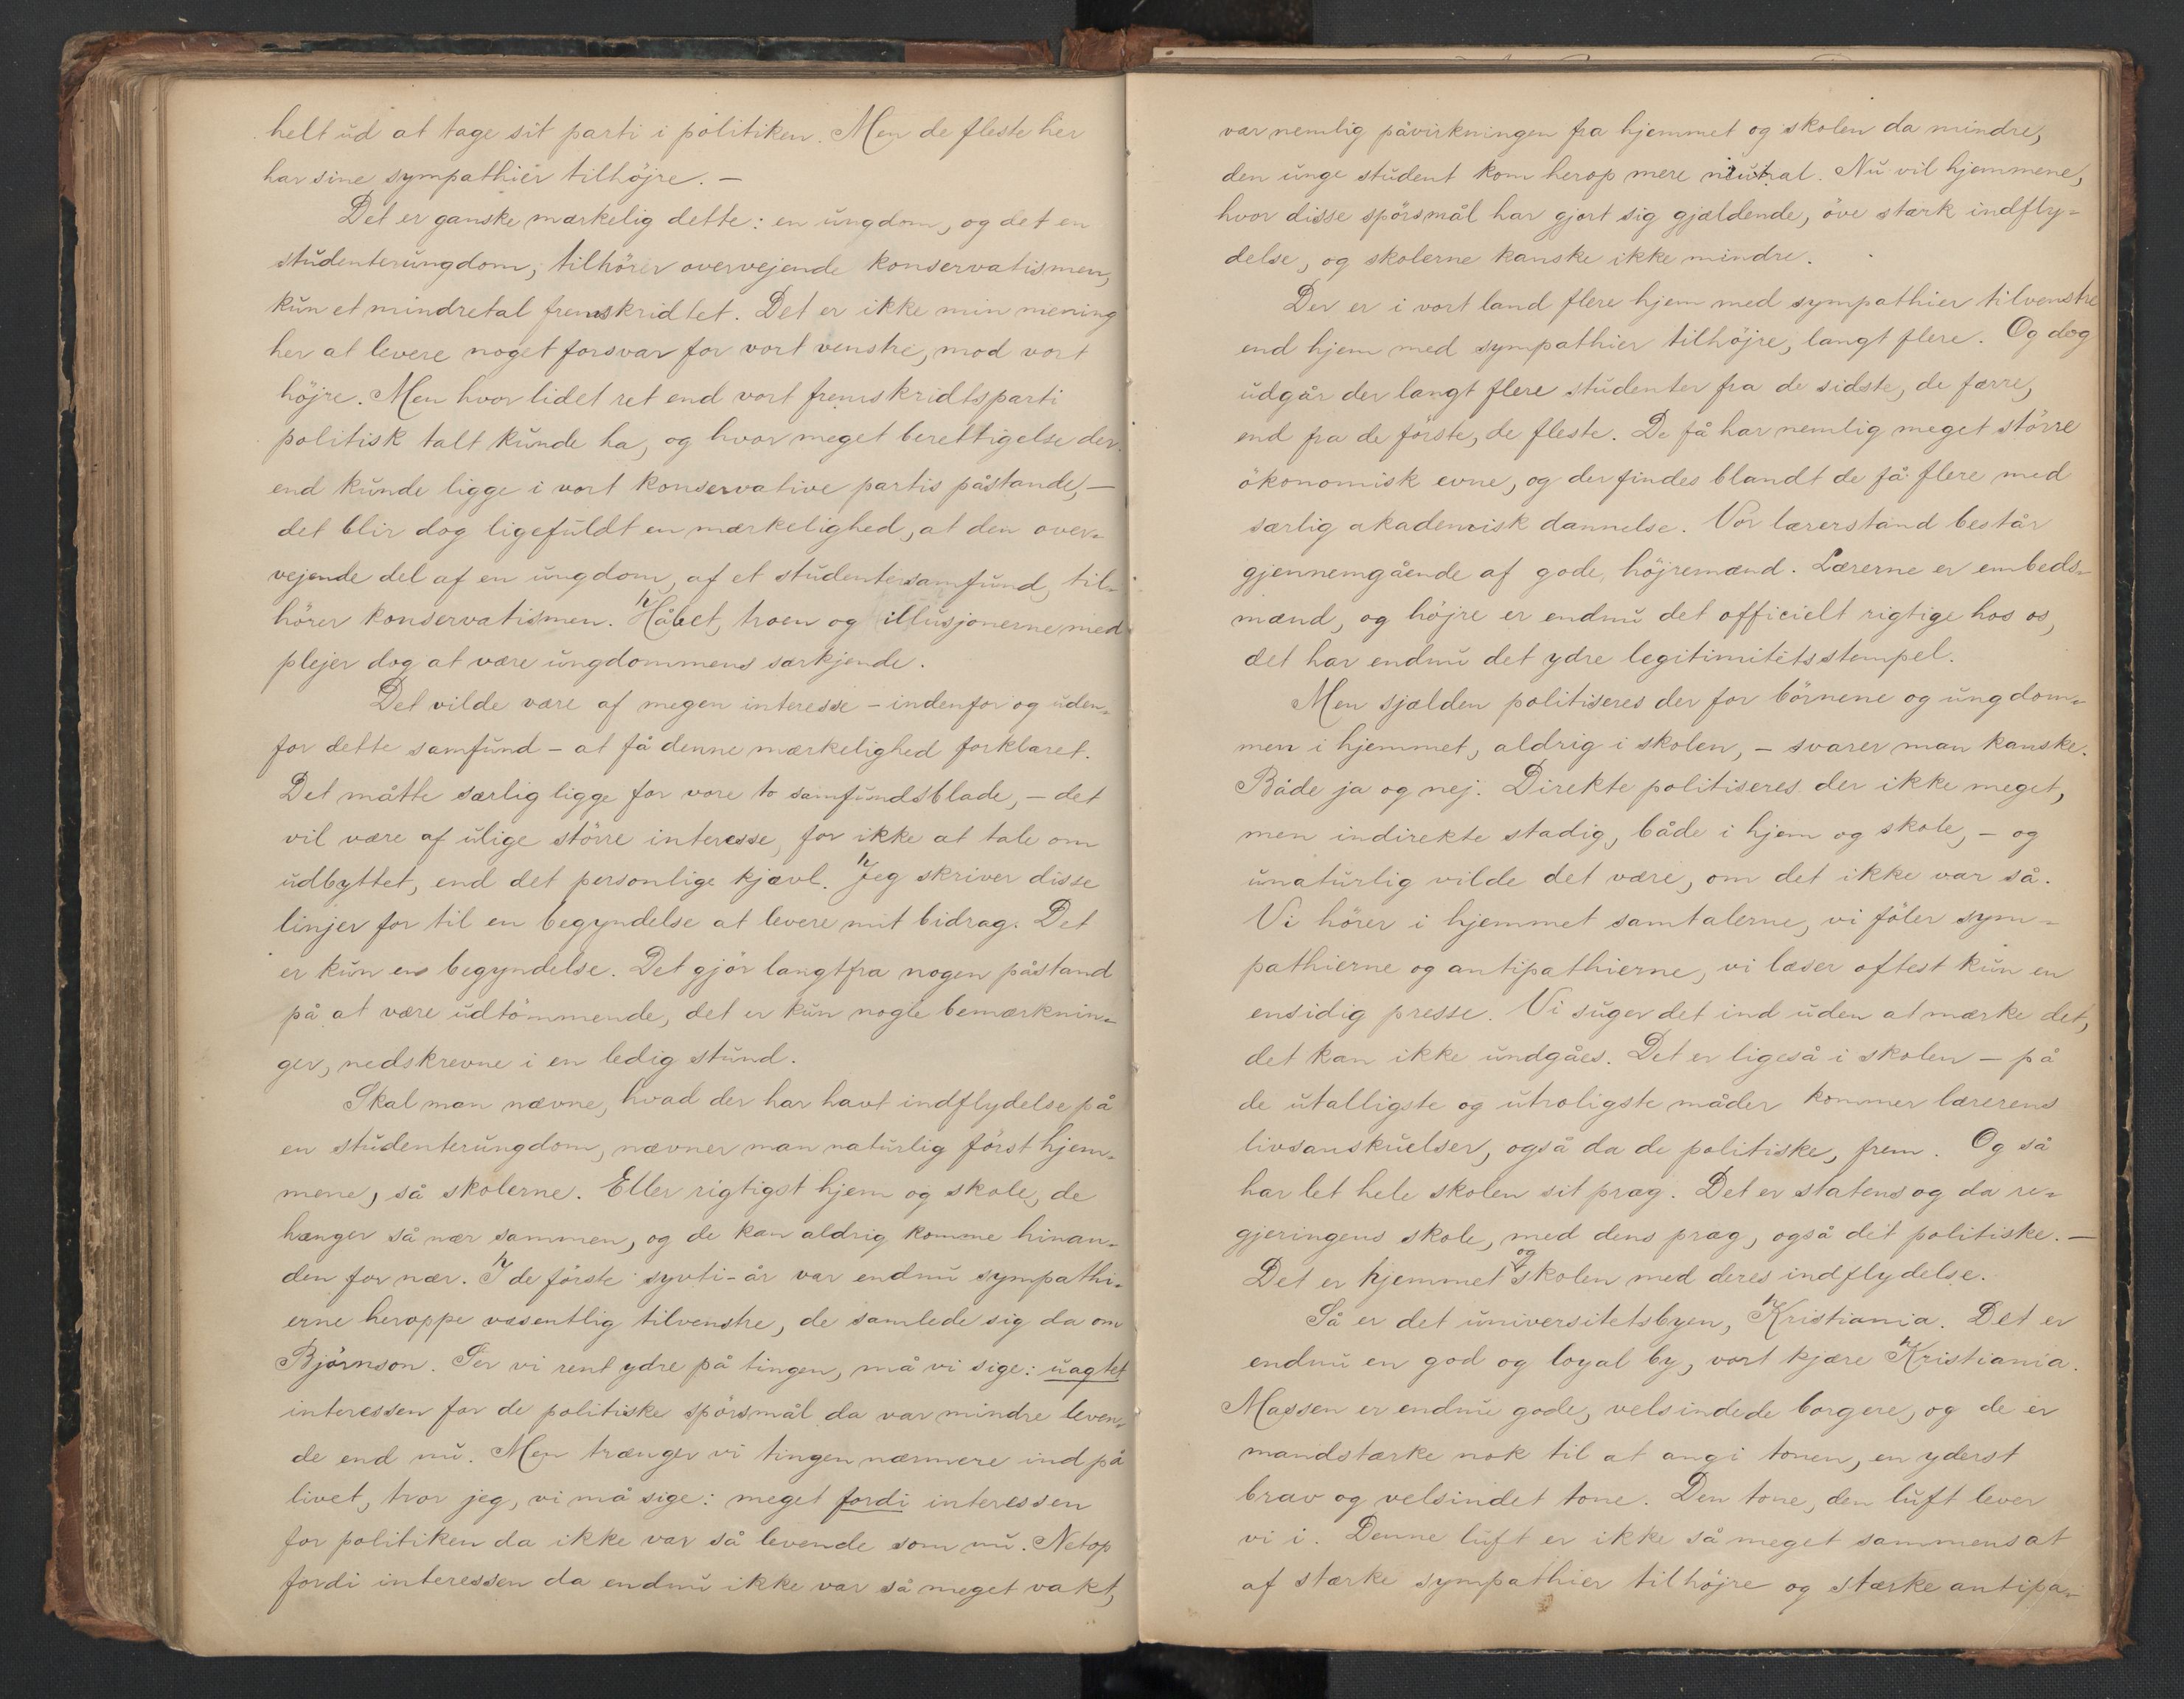 helt ud at tage sit parti i politiken. Men de fleste her
har sine sympathier tilhöjre. –
Det er ganske mærkelig dette: en ungdom, og det en
studenterungdom, tilhörer overvejende konservatismen,
kun et mindretal fremskridtet. Det er ikke min mening
her at levere noget forsvar for vort venstre, mod vort
höjre. Men hvor lidet ret end vort fremskridtsparti
politisk talt kunde ha, og hvor meget berettigelse der
end kunde ligge i vort konservative partis påstande, –
det blir dog ligefuldt en mærkelighed, at den over-
vejende del af en ungdom, af et studentersamfund, til-
hörer konservatismen. Håbet, troen og illusjonerne med
plejer dog at være ungdommens særkjende.
Det vilde være af megen interesse – indenfor og uden-
for dette samfund – at få denne mærkelighed forklaret.
Det måtte særlig ligge for vore to samfundsblade, – det
vil være af ulige större interesse, for ikke at tale om
udbyttet, end det personlige kjævl. Jeg skriver disse
linjer for til en begyndelse at levere mit bidrag. Det
er kun en begyndelse. Det gjör langtfra nogen påstand
på at være udtömmende, det er kun nogle bemærknin-
ger, nedskrevne i en ledig stund.
Skal man nævne, hvad der har havt indflydelse på
en studenterungdom, nævner man naturlig först hjem-
mene, så skolerne. Eller rigtigst hjem og skole, de
hænger så nær sammen, og de kan aldrig komme hinan-
den for nær. I de förste sytti-år var endnu sympathi-
erne heroppe væsentlig tilvenstre, de samlede sig da om
Björnson. Ser vi rent ydre på tingen, må vi sige: uagtet
interessen for de politiske spörsmål da var mindre leven-
de end nu. Men trænger vi tingen nærmere ind på
livet, tror jeg, vi må sige: meget fordi interessen
for politiken da ikke var så levende som nu. Netop
fordi interessen da endnu ikke var så meget vakt,
var nemlig påvirkningen fra hjemmet og skolen da mindre,
den unge student kom herop mere nøutral. Nu vil hjemmene,
hvor disse spörsmål har gjort sig gjældende, öve stærk indfly-
delse, og skolerne kanske ikke mindre.
Der er i vort land flere hjem med sympathier tilvenstre
end hjem med sympathier tilhöjre, langt flere. Og dog
udgår der langt flere studenter fra de sidste, de færre,
end fra de förste, de fleste. De få har nemlig meget större
ökonomisk evne, og der findes blandt de få flere med
særlig akademisk dannelse. Vor lærerstand består
gjennemgående af gode höjremænd. Lærerne er embeds-
mænd, og höjre er endnu det officielt rigtige hos os,
det har endnu det ydre legitimitetsstempel.
Men sjælden politiseres der for börnene og ungdom-
men i hjemmet, aldrig i skolen, – svarer man kanske.
Både ja og nej. Direkte politiseres der ikke meget,
men indirekte stadig, både i hjem og skole, – og
unaturlig vilde det være, om det ikke var så.
Vi hörer i hjemmet samtalerne, vi föler sym-
pathierne og antipathierne, vi læser oftest kun en
ensidig presse. Vi suger det ind uden at mærke det,
det kan ikke undgåes. Det er ligeså i skolen – på
de utalligste og utroligste måder kommer lærerens
livsanskuelser, også da de politiske, frem. Og så
har let hele skolen sit præg. Det er statens og da re-
gjeringens skole, med dens præg, også det politiske. –
Det er hjemmet og skolen med deres indflydelse.
Så er det universitetsbyen, Kristiania. Det er
endnu en god og loyal by, vort kjære Kristiania.
Massen er endnu gode, velsindede borgere, og de er
mandstærke nok til at angi tonen, en yderst
brav og velsindet tone. Den tone, den luft lever
vi i. Denne luft er ikke så meget sammensat
af stærke sympathier tilhöjre og stærke antipa-